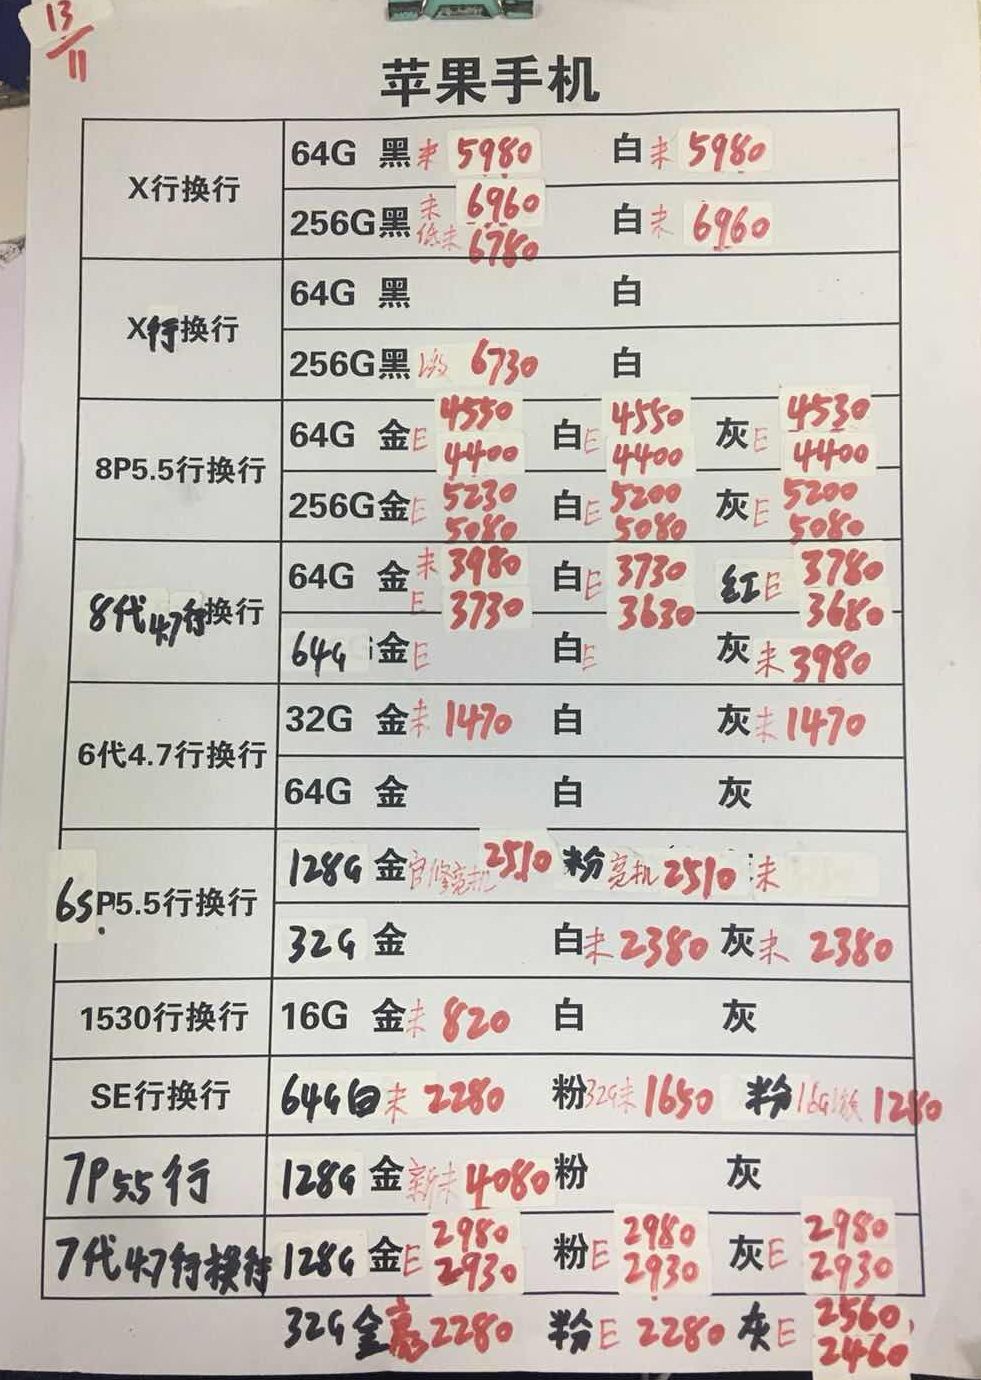 13/11
苹果手机
X行换行
64G 黑 未 5980 白 未 5980
256G 黑 未 6960 白 未 6960
低未 6780
X行换行
64G 黑 白
256G 黑 激 6730 白
8P5.5行换行
64G 金 E 4550 白 E 4550 灰 E 4530
4400 4400 4400
256G 金 E 5230 白 E 5200 灰 E 5200
5080 5080 5080
8代4.7行换行
64G 金 未 3980 白 E 3730 红 E 3780
E 3730 3630 3680
64G 金 E 白 E 灰 未 3980
6代4.7行换行
32G 金 未 1470 白 灰 未 1470
64G 金 白 灰
6SP5.5行换行
128G 金 官修亮机 2510 粉 亮机 2510 未
32G 金 白 未 2380 灰 未 2380
1530行换行
16G 金 未 820 白 灰
SE行换行
64G 白 未 2280 粉 32G未 1650 粉 16G激 1280
7P 5.5行
128G 金 新未 4080 粉 灰
7代4.7行换行
128G 金 E 2980 粉 E 2980 灰 E 2980
2930 2930 2930
32G 金 亮 2280 粉 E 2280 灰 E 2560
2460